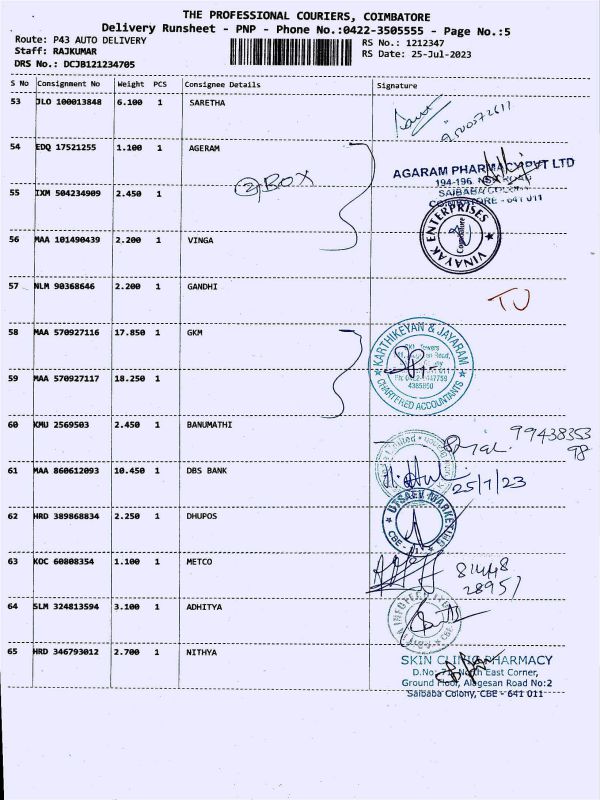 THE PROFESSIONAL COURIERS, COIMBATORE
Delivery Runsheet - PNP - Phone No.:0422-3505555 - Page No.:5
Route: P43 AUTO DELIVERY
RS No.: 1212347
Staff: RAJKUMAR
RS Date: 25-Jul-2023
DRS No.: DCJB121234705
S No Consignment No Weight PCS Consignee Details Signature
53 JLO 100013848 6.100 1 SARETHA
54 EDQ 17521255 1.100 1 AGERAM
AGARAM PHARMACY PVT LTD
194-196, NSR ROAD
55 IXM 504234909 2.450 1 ② BOX
SAIBABA COLONY
COIMBATORE - 641 011
56 MAA 101490439 2.200 1 VINGA
VINAYAK ENTERPRISES
Coimbatore
57 NLM 90368646 2.200 1 GANDHI
58 MAA 570927116 17.850 1 GKM
KARTHIKEYAN & JAYARAM
Towers
Road,
4385800
CHARTERED ACCOUNTANTS
59 MAA 570927117 18.250 1
60 KMU 2569503 2.450 1 BANUMATHI
99438353
98
61 MAA 860612093 10.450 1 DBS BANK
Limited
25/7/23
62 HRD 389868834 2.250 1 DHUPOS
UTSAEV MARKETING
CBE
63 KOC 60808354 1.100 1 METCO
81448
28957
64 SLM 324813594 3.100 1 ADHITYA
INFOTECH
CBE
65 HRD 346793012 2.700 1 NITHYA
SKIN CLINIC PHARMACY
D.No: North East Corner,
Ground Floor, Alagesan Road No:2
Saibaba Colony, CBE - 641 011